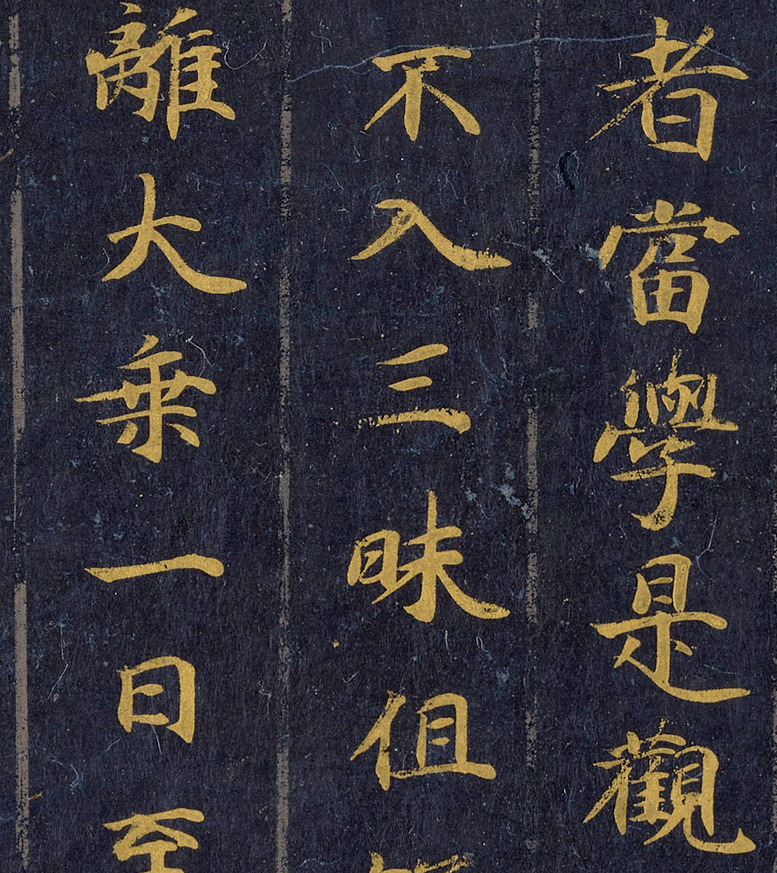 者當學是觀
不入三昧但
離大乗一日至